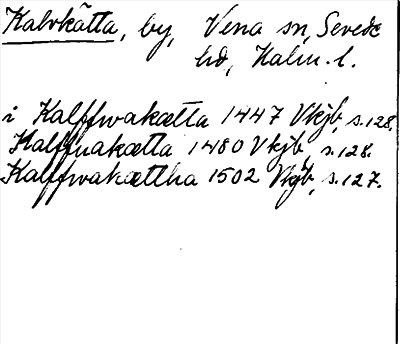 Kalvkätta, by, Vena sn, Sevede
hd, Kalm. l.
i Kalffwakætta 1447 Vkjb, s. 128.
Kalffuakætta 1480 Vkjb, s. 128.
Kalffwakættha 1502 Vkjb, s. 127.